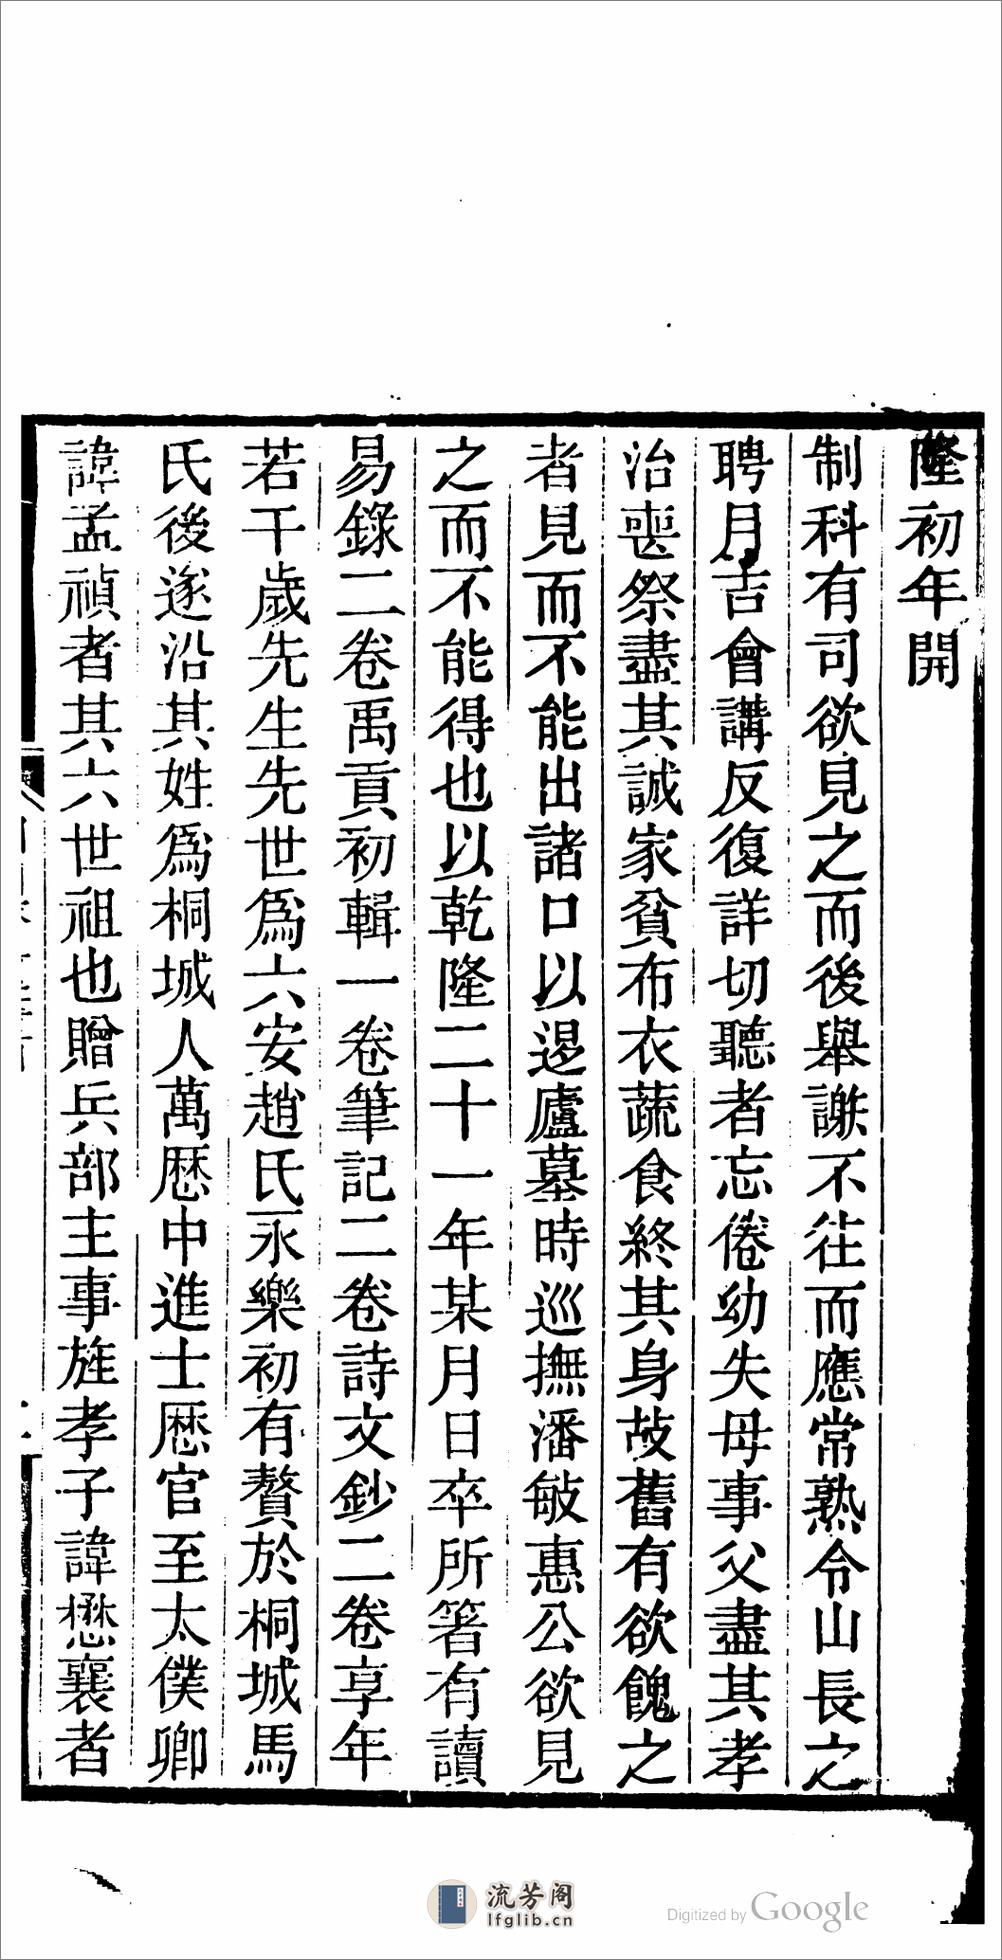 隆初年開
制科有司欲見之而後舉謝不往而應常熟令山長之
聘月吉會講反復詳切聽者忘倦幼失母事父盡其孝
治喪祭盡其誠家貧布衣蔬食終其身故舊有欲餽之
者見而不能出諸口以退廬墓時巡撫潘敏惠公欲見
之而不能得也以乾隆二十一年某月日卒所箸有讀
易錄二卷禹貢初輯一卷筆記二卷詩文鈔二卷享年
若干歲先生先世爲六安趙氏永樂初有贅於桐城馬
氏後遂沿其姓爲桐城人萬厯中進士厯官至太僕卿
諱孟禎者其六世祖也贈兵部主事旌孝子諱懋襄者
流芳阁
lfglib.cn
Digitized by Google